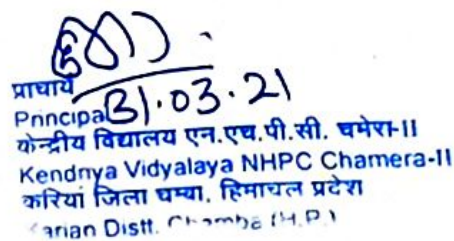 प्राचार्य
Principal 31.03.21
केन्द्रीय विद्यालय एन.एच.पी.सी. चमेरा-II
Kendriya Vidyalaya NHPC Chamera-II
करियां जिला चम्बा, हिमाचल प्रदेश
Karian Distt. Chamba (H.P.)